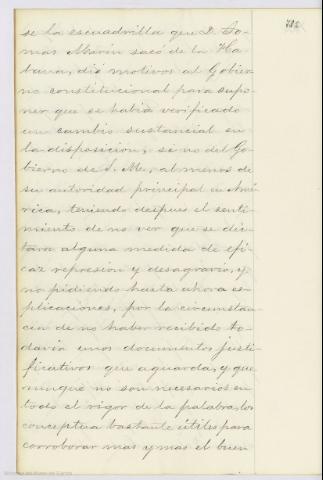 782
se la escuadrilla que D. To-
mas Marin sacó de la Ha-
bana, dió motivos al Gobier-
no constitucional para supo-
ner que se habia verificado
un cambio sustancial en
la disposicion, si no del Go-
bierno de S. M., al menos de
su autoridad principal en Amé-
rica, teniendo despues el senti-
miento de no ver que se dic-
tara alguna medida de efi-
caz represion y desagravio, y
no pidiendo hasta ahora es-
plicaciones, por la circunstan-
cia de no haber recibido to-
davia unos documentos justi-
ficativos que aguarda, y que
aunque no son necesarios en
todo el rigor de la palabra, los
conceptua bastante útiles para
corroborar mas y mas el buen